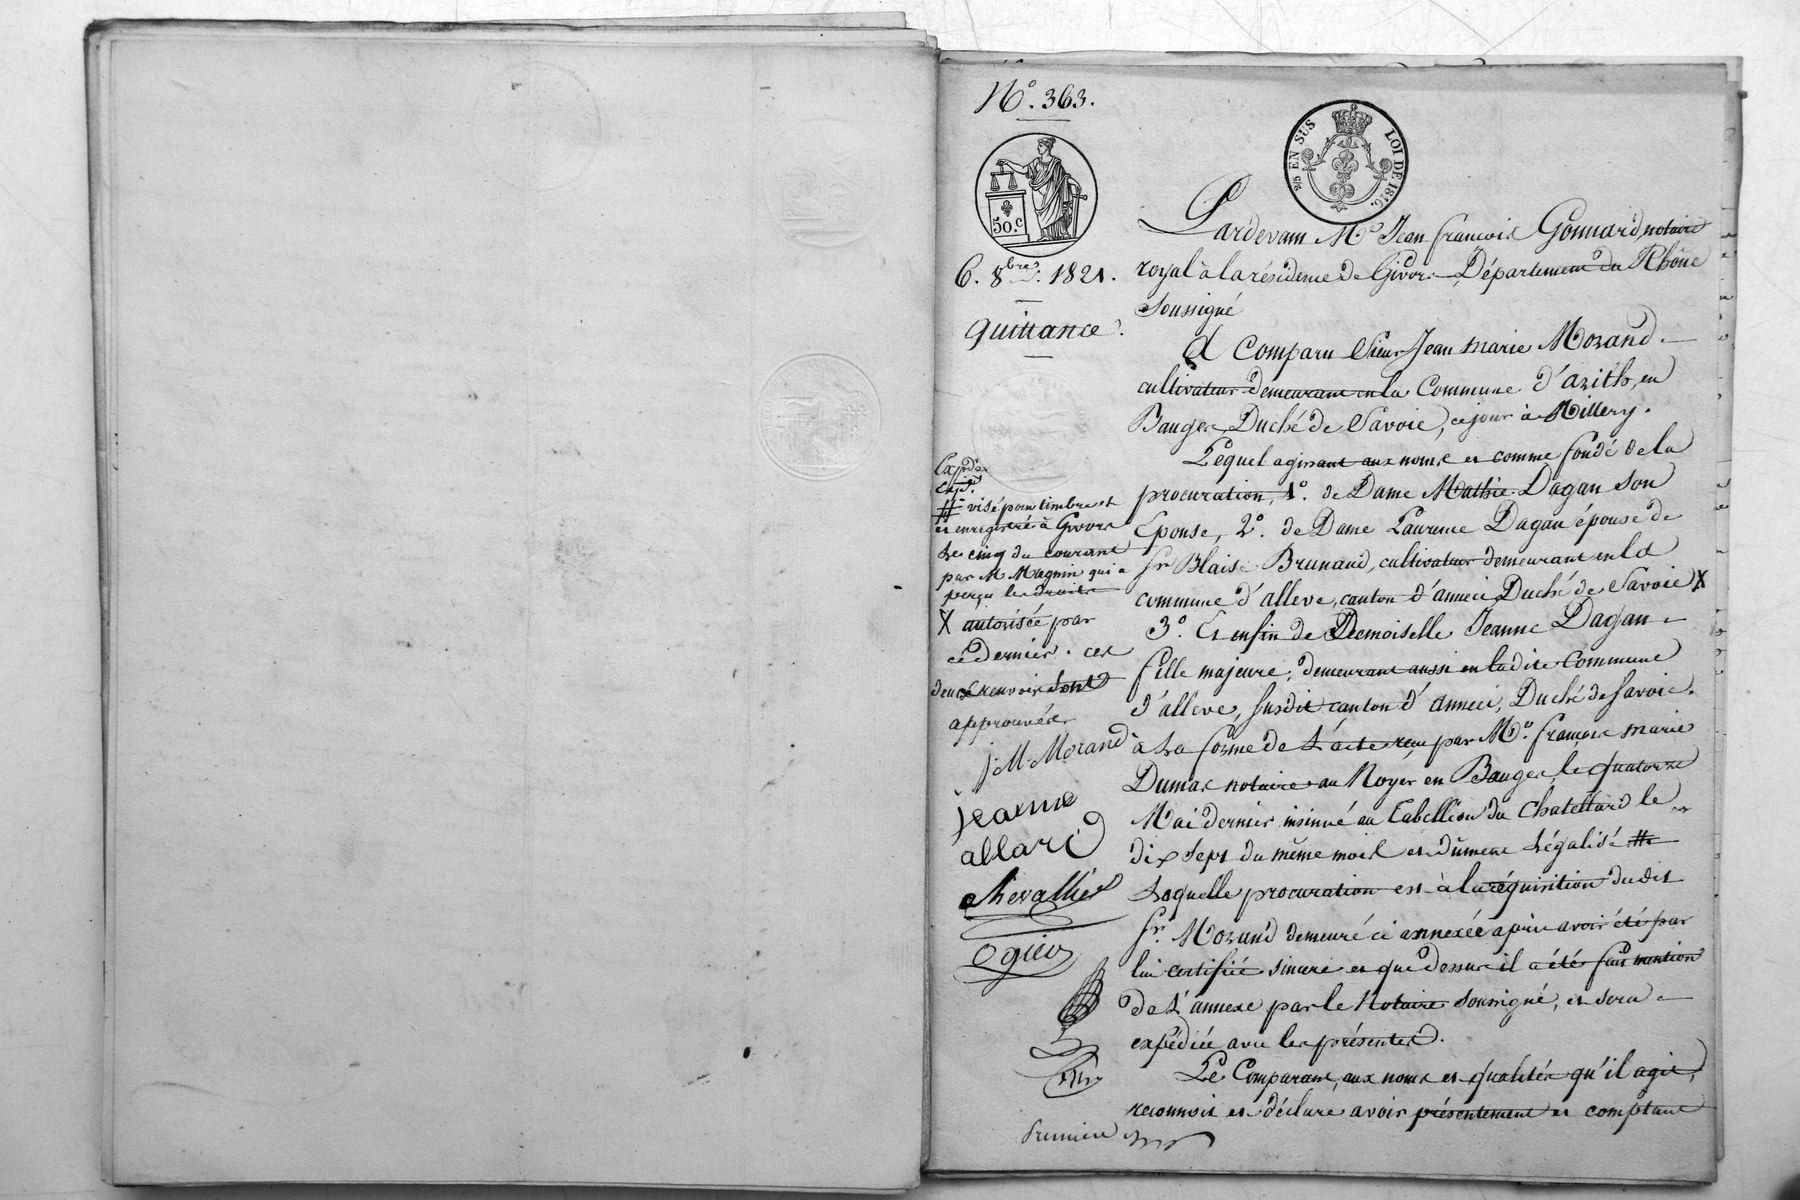 N° 363.
25 EN SUS LOI DE 1816.
50.c
6. 8bre. 1821.
quittance.
Pardevant Me Jean françois Gonnard, notaire
royal à la résidence de Givors, Département du Rhône
soussigné
A Comparu Sieur Jean marie Morand
cultivateur demeurant en la Commune d'arith, en
Bauges, Duché de Savoie, ce jour à Millery.
Lequel agissant aux noms et comme fondé de la
procuration, 1°. de Dame Mathie Dagan son
Epouse, 2°. de Dame Laurence Dagan épouse de
Sr. Blaise Brunand, cultivateur demeurant en la
commune d'alleve, canton d'anneci, Duché de Savoie X
3°. Et enfin de Demoiselle Jeanne Dagan
fille majeure, demeurant aussi en ladite Commune
d'alleve, susdit canton d'anneci, Duché de Savoie.
à la forme de l'acte reçu par Me. françois marie
Dumas notaire au Noyer en Bauges, le quatorze
Mai dernier, insinué au Tabellion du Chatellard le
dix sept du même mois et dûment légalisé #
Laquelle procuration est à la réquisition dudit
Sr. Morand demeuré ci annexée après avoir été par
lui certifié sincere et que dessus il a été fait mention
de l'annexe par le Notaire soussigné, et sera
expédiée avec les présentes.
Le Comparant, aux noms et qualités qu'il agit,
reconnoit et déclare avoir présentement et comptant
Expd.
# visé pour timbre et
et enregistré à Givors
le cinq du courant
par M Magnin qui a
perçu les droits
X autorisée par
ce dernier. ces
deux renvois sont
approuvés
J. M. Morand
jeanne
allard
chevallier
Ogier
première